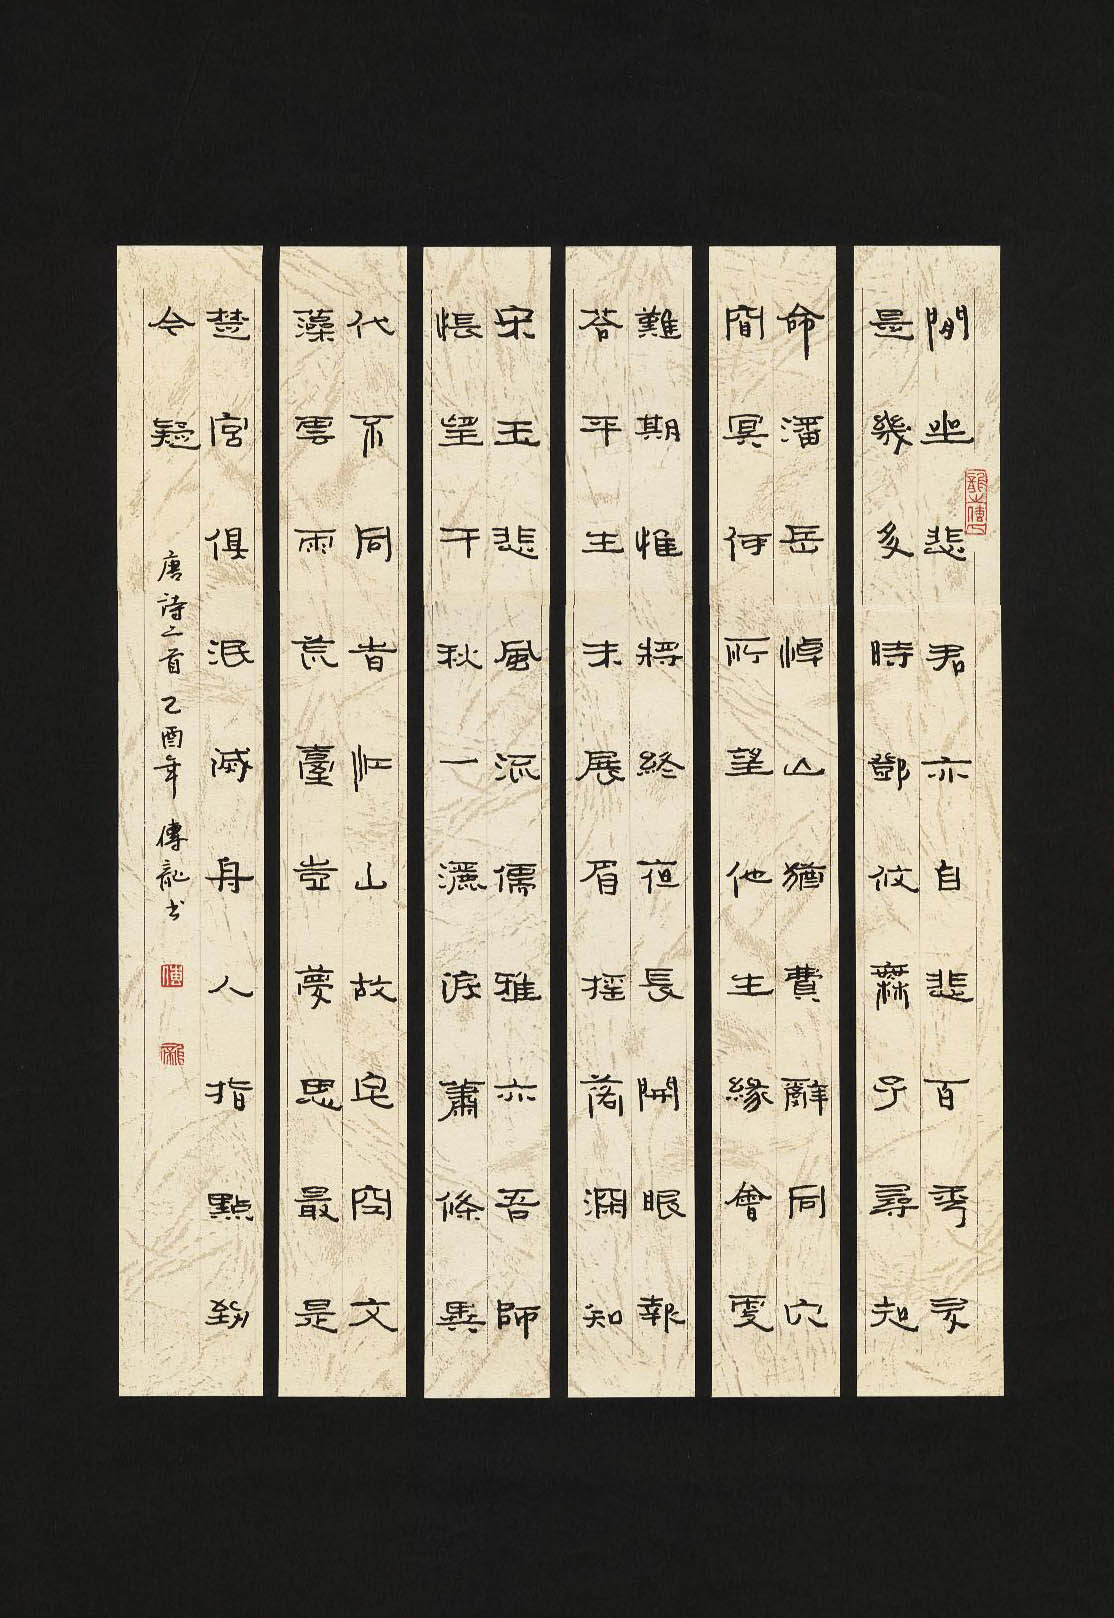 閒坐悲君亦自悲百年多
是幾多時鄧攸無子尋知
命潘岳悼亡猶費辭同穴
窅冥何所望他生緣會更
難期惟將終夜長開眼報
答平生未展眉搖落深知
宋玉悲風流儒雅亦吾師
悵望千秋一灑淚蕭條異
代不同時江山故宅空文
藻雲雨荒臺豈夢思最是
楚宮俱泯滅舟人指點到
今疑
唐詩二首 乙酉年 傅龍书
傅
龍